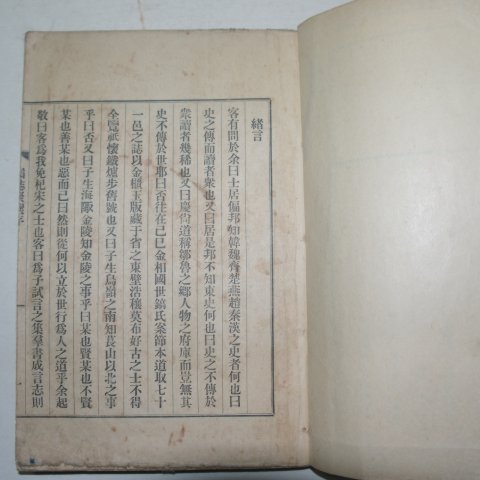 緒言
客有問於余曰士居偏邦知韓魏齊楚燕趙秦漢之史者何也曰
史之傳而讀者衆也又曰居是邦不知東史何也曰史之不傳於
衆讀者幾稀也又曰慶尙道稱鄒魯之鄕人物之府庫而豈無其
史不傳於世耶曰否往在己巳金相國世鎬氏案節本道取七十
一邑之誌以金櫃玉版藏于省之東壁浩穰莫布好古之士不得
全覽祇懷鐵爐步舊號也又曰子生鳥嶺之南知長山以北之事
乎曰否又曰子生海陬金陵知金陵之事乎曰某也賢某也不賢
某也善某也惡而已曰然則從何以立於世行爲人之道乎余起
敬曰客爲我免杞宋之士也客曰爲子試言之集羣書成言志則